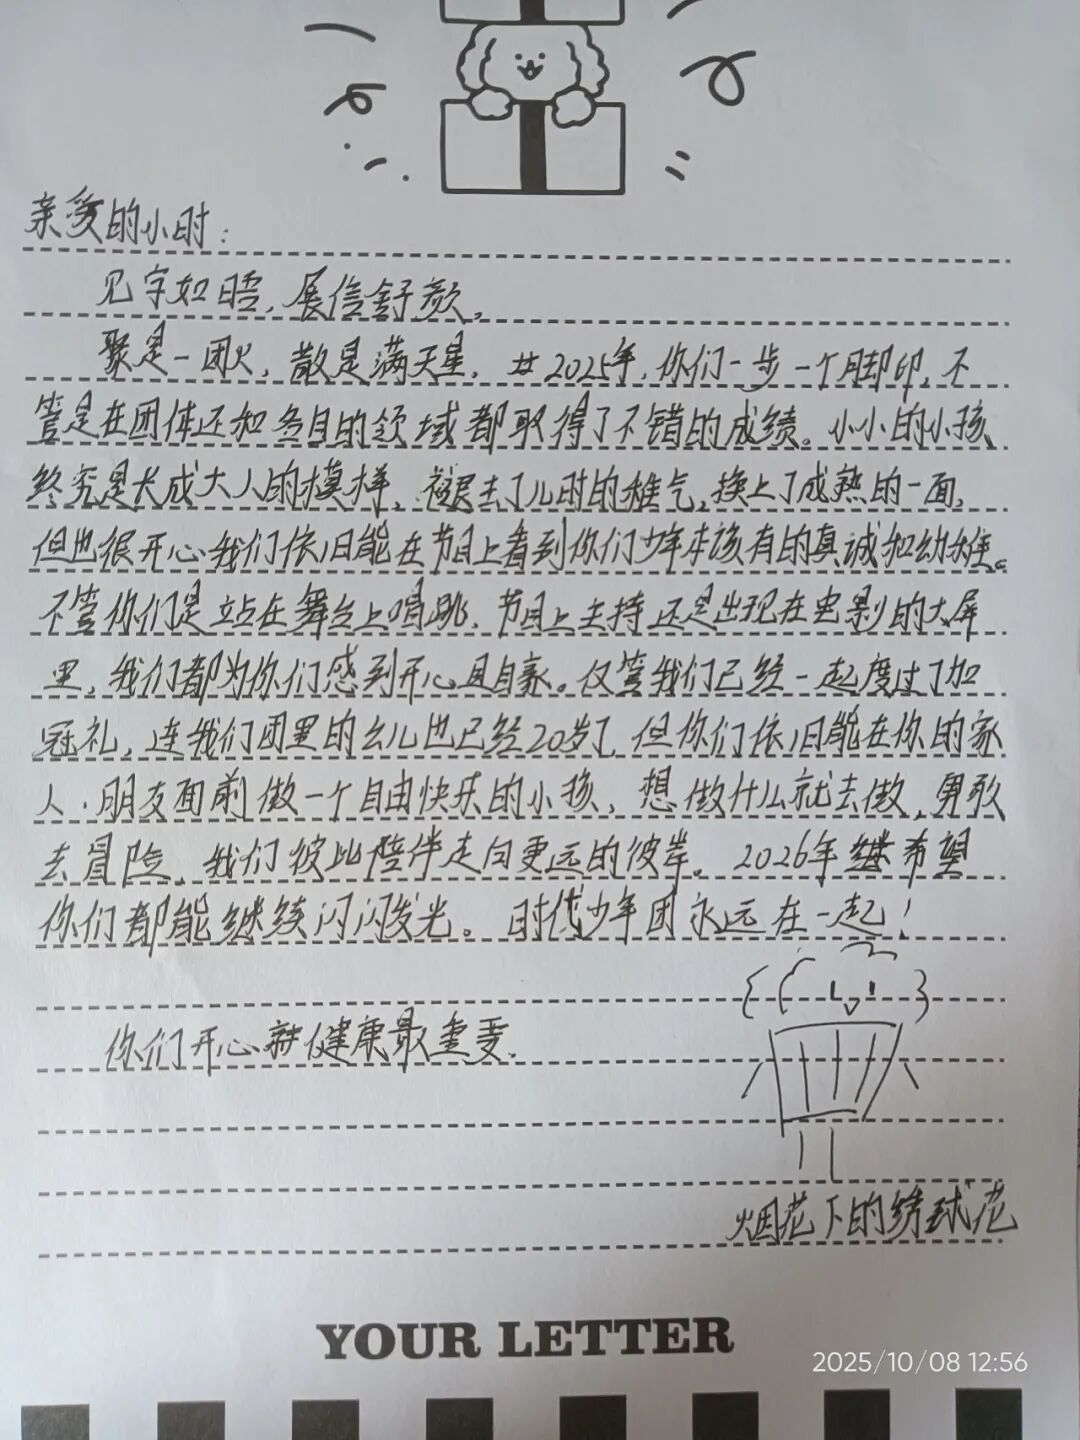 亲爱的小时：
见字如晤，展信舒颜。
聚是一团火，散是满天星。2025年，你们一步一个脚印，不
管是在团体还和各自的领域都取得了不错的成绩。小小的小孩
终究是长成大人的模样，褪去了儿时的稚气，换上了成熟的一面，
但也很开心我们依旧能在节目上看到你们少年本该有的真诚和幼稚。
不管你们是站在舞台上唱跳，节目上主持还是出现在电影的大屏
里，我们都为你们感到开心且自豪。仅管我们已经一起度过了加
冠礼，连我们团里的幺儿也已经20岁了，但你们依旧能在你的家
人、朋友面前做一个自由快乐的小孩，想做什么就去做，勇敢
去冒险，我们彼此陪伴走向更远的彼岸。2026年希望
你们都能继续闪闪发光。时代少年团永远在一起！
你们开心和健康最重要。
烟花下的绣球花
YOUR LETTER
2025/10/08 12:56